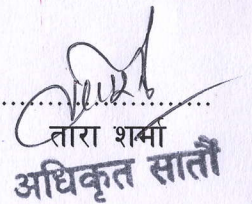 तारा शर्मा
अधिकृत सातौं